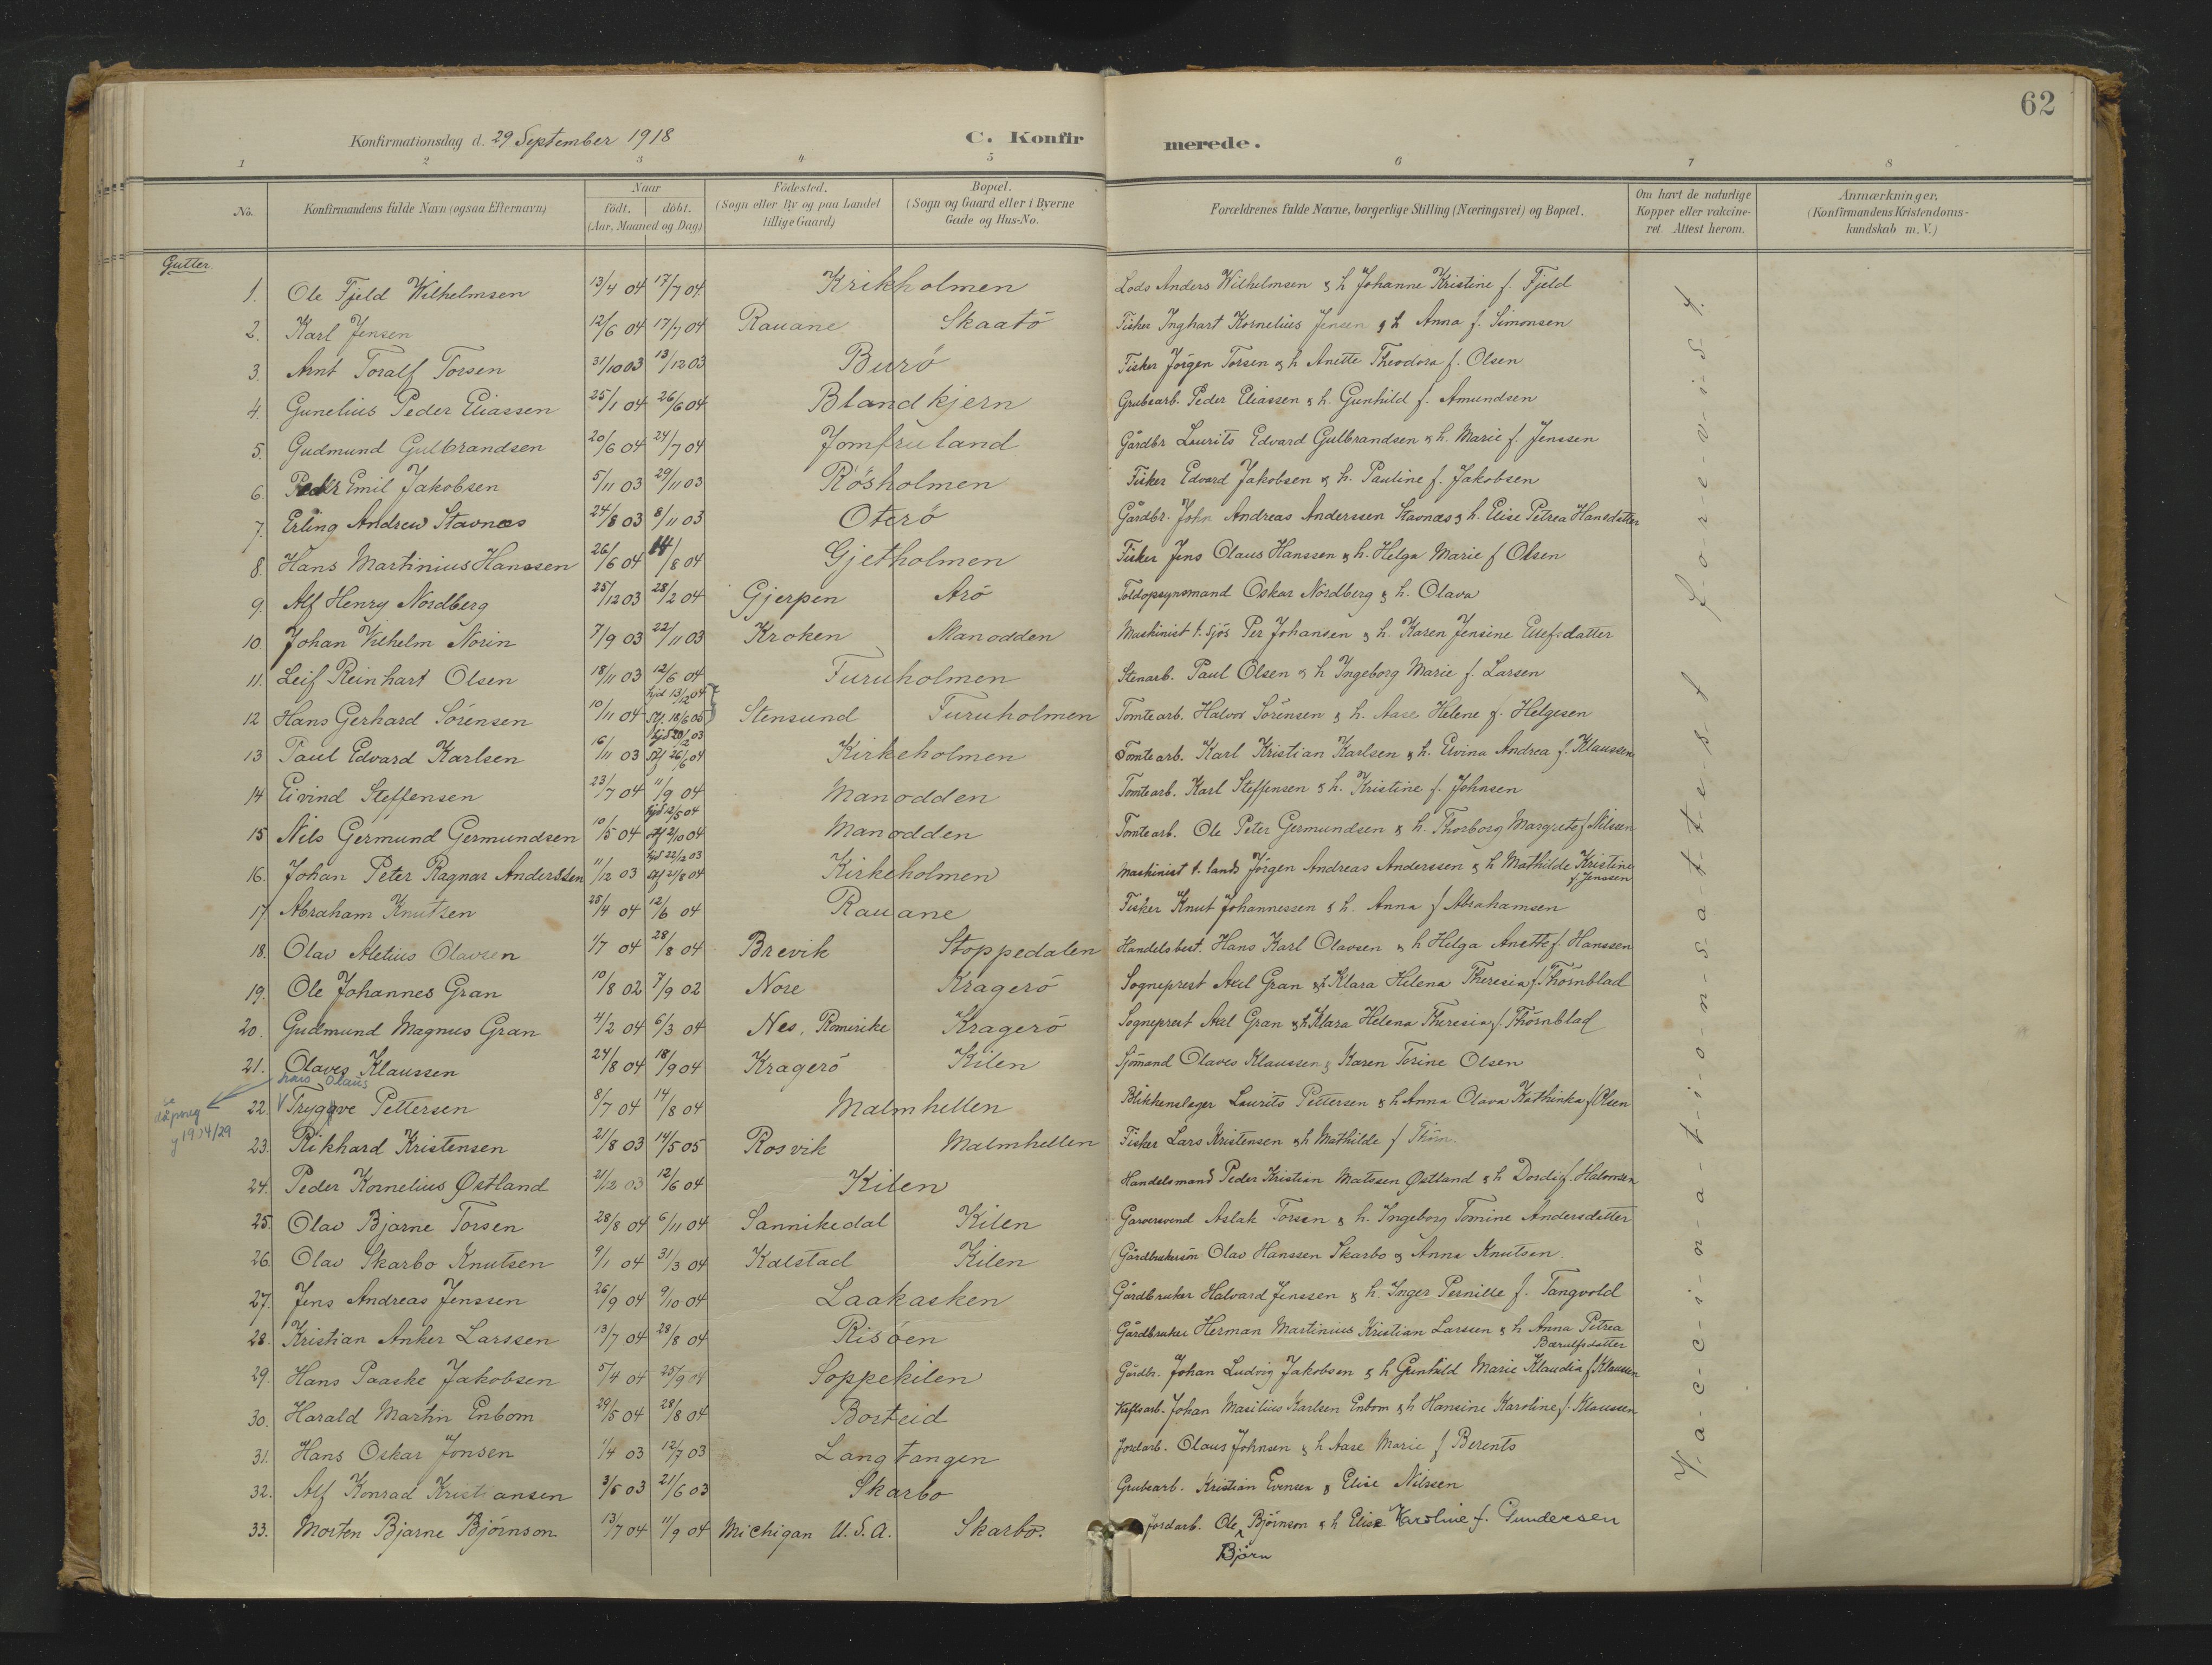 62
Konfirmationsdag d. 29 September 1918 C. Konfirmerede.
1 2 3 4 5 6 7 8
No. Konfirmandens fulde Navn (ogsaa Efternavn) Naar födt. döbt. (Aar, Maaned og Dag) Födested. (Sogn eller By og paa Landet tillige Gaard) Bopæl. (Sogn og Gaard eller i Byerne Gade og Hus-No. Forældrenes fulde Navne, borgerlige Stilling (Næringsvei) og Bopæl. Om havt de naturlige Kopper eller vakcineret. Attest herom. Anmærkninger, (Konfirmandens Kristendomskundskab m. V.)
Gutter
1. Ole Fjeld Wilhelmsen 13/4 04 17/7 04 Krikholmen Lods Anders Wilhelmsen & h Johanne Kristine f. Fjeld
2. Karl Jensen 12/6 04 17/7 04 Rauane Skaatö Fisker Inghart Kornelius Jensen & h Anna f. Simonsen
3. Arnt Toralf Torsen 31/10 03 13/12 03 Burö Fisker Jörgen Torsen & h Anette Theodora f. Olsen
4. Gunelius Peder Eliassen 25/1 04 26/6 04 Blandkjern Grubearb. Peder Eliassen & h. Gunhild f. Amundsen
5. Gudmund Gulbrandsen 20/6 04 24/7 04 Jomfruland Gårdbr Laurits Edvard Gulbrandsen & h. Marie f. Jenssen
6. Peder Emil Jakobsen 5/11 03 29/11 03 Rösholmen Fisker Edvard Jakobsen & h. Pauline f. Jakobsen
7. Erling Andrew Stavnæs 24/8 03 8/11 03 Oterö Gårdbr. John Andreas Anderssen Stavnæs & h. Elise Petrea Hansdatter
8. Hans Martinius Hanssen 26/6 04 14/8 04 Gjetholmen Fisker Jens Olaus Hanssen & h. Helga Marie f Olsen
9. Alf Henry Nordberg 25/12 03 28/2 04 Gjerpen Arö Toldopsynsmand Oskar Nordberg & h. Olava
10. Johan Vilhelm Norin 7/9 03 22/11 03 Kroken Manodden Maskinist t. sjös Per Johansen & h. Karen Jensine Ellefsdatter
11. Leif Reinhart Olsen 18/11 03 12/6 04 Furuholmen Stenarb. Paul Olsen & h Ingeborg Marie f. Larsen
12 Hans Gerhard Sörensen 10/11 04 hjd 13/12 04 Stf. 18/6 05 Stensund Furuholmen Tomtearb. Halvor Sörensen & h. Aase Helene f. Helgesen
13 Paul Edvard Karlsen 16/11 03 hjd 20/12 03 Stf 26/6 04 Kirkeholmen Tomtearb. Karl Kristian Karlsen & h. Elvina Andrea f. Klaussen
14 Eivind Steffensen 23/7 04 11/9 04 Manodden Tomtearb. Karl Steffensen & h. Kristine f. Johnsen
15 Nils Germund Germundsen 10/5 04 hjd 12/5 04 stf 2/10 04 Manodden Tomtearb. Ole Peter Germundsen & h. Thorborg Margrete f Nilsen
16. Johan Peter Ragnar Anderssen 11/12 03 hjd 22/12 03 Stf 21/8 04 Kirkeholmen Maskinist t. lands Jörgen Andreas Anderssen & h Mathilde Kristine f. Jenssen
17 Abraham Knutsen 25/4 04 12/6 04 Rauane Fisker Knut Johannessen & h. Anna f Abrahamsen
18. Olav Aletius Olavsen 1/7 04 28/8 04 Brevik Stoppedalen Handelsbest. Hans Karl Olavsen & h Helga Anette f. Hanssen
19. Ole Johannes Gran 10/8 02 7/9 02 Nore Kragerö Sogneprest Axel Gran & h Klara Helena Theresia f. Thörnblad
20. Gudmund Magnus Gran 4/2 04 6/3 04 Nes, Romerike Kragerö Sogneprest Axel Gran & h Klara Helena Theresia f. Thörnblad
21. Olaves Klaussen 24/8 04 18/9 04 Kragerö Kilen Sjömand Olaves Klaussen & Karen Torine Olsen
hans Olaus
22. V Tryggve Pettersen 8/7 04 14/8 04 Malmhellen Blikkenslager Laurits Pettersen & h Anna Olava Kathinka f Olsen
se dåpsreg y 1904/29
23. Rikhard Kristensen 21/8 03 14/5 05 Rosvik Malmhellen Fisker Lars Kristensen & h Mathilde f
24. Peder Kornelius Østland 21/12 03 12/6 04 Kilen Handelsmand Peder Kristian Matssen Østland & h Dordi f. Halvorsen
25. Olav Bjarne Torsen 28/8 04 6/11 04 Sannikedal Kilen Garversvend Aslak Torsen & h. Ingeborg Tomine Andersdatter
26. Olav Skarbo Knutsen 9/1 04 31/3 04 Kalstad Kilen Gårdbrukersön Olav Hanssen Skarbo & Anna Knutsen.
27. Jens Andreas Jenssen 26/9 04 9/10 04 Laakasken Gårdbruker Halvard Jenssen & h. Inger Pernille f. Tangvold
28. Kristian Anker Larssen 13/7 04 28/8 04 Risöen Gårdbruker Herman Martinius Kristian Larssen & h Anna Petrea Bærulfsdatter
29. Hans Paaske Jakobsen 5/4 04 25/9 04 Soppekilen Gårdbr. Johan Ludvig Jakobsen & h Gunhild Marie Klaudia f. Klausen
30. Harald Martin Enbom 29/5 04 28/8 04 Borteid Johan Masilius Karlsen Enbom & h Hansine Karoline f. Klaussen
31. Hans Oskar Jonsen 1/4 03 12/7 03 Langtangen Jordarb. Olaus Johnsen & h Aase Marie f Berents
32. Alf Konrad Kristiansen 3/5 03 21/6 03 Skarbo Grubearb. Kristian Evensen & Elise Nilssen
33. Morten Bjarne Björnson 13/7 04 11/9 04 Michigan U.S.A. Skarbo. Jordarb. Ole Björnson & h Elise Karoline f. Gundersen
Björn
V-a-c-c-i-n-a-t-i-o-n-s-a-t-t-e-s-t f-o-r-e-v-i-s-t.